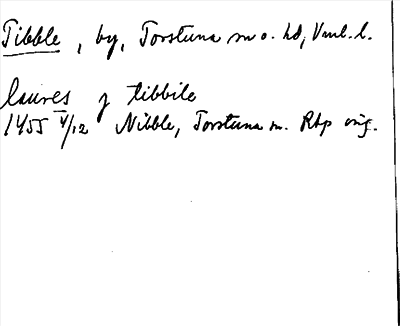 Tibble, by, Torstuna sn o. hd, Vml. l.
laures j tibbile
1455 5/12 Nibble, Torstuna sn. Rap orig.